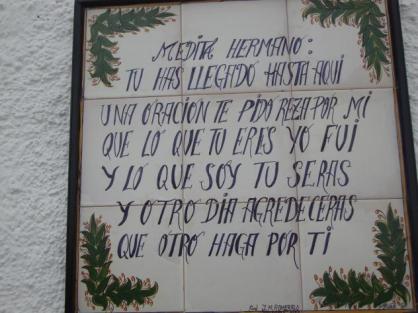 MEDITA HERMANO:
TU HAS LLEGADO HASTA AQUI
UNA ORACIÓN TE PIDO REZA POR MI
QUE LO QUE TU ERES YO FUI
Y LO QUE SOY TU SERAS
Y OTRO DIA AGREDECERAS
QUE OTRO HAGA POR TI